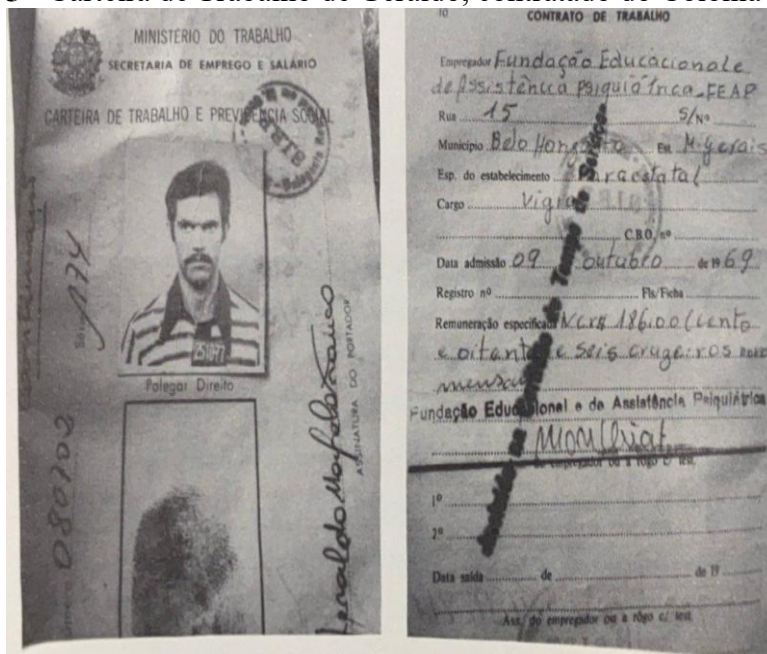 MINISTÉRIO DO TRABALHO
SECRETARIA DE EMPREGO E SALÁRIO
CARTEIRA DE TRABALHO E PREVIDÊNCIA SOCIAL
Série 174
080702
Polegar Direito
ASSINATURA DO PORTADOR
10
CONTRATO DE TRABALHO
Empregador Fundação Educacional e
de Assistência Psiquiátrica - FEAP
Rua 15 S/Nº
Município Belo Horizonte Est. M. Gerais
Esp. do estabelecimento Paraestatal
Cargo Vigia
C.B.O. nº
Data admissão 09 outubro de 19 69
Registro nº Fls/Ficha
Remuneração especificada NCr$ 186,00 (cento
e oitenta e seis cruzeiros novos
mensais
Fundação Educacional e de Assistência Psiquiátrica
do empregador ou a rôgo c/ test.
1º
2º
Data saída de de 19
Ass. do empregador ou a rôgo c/ test.